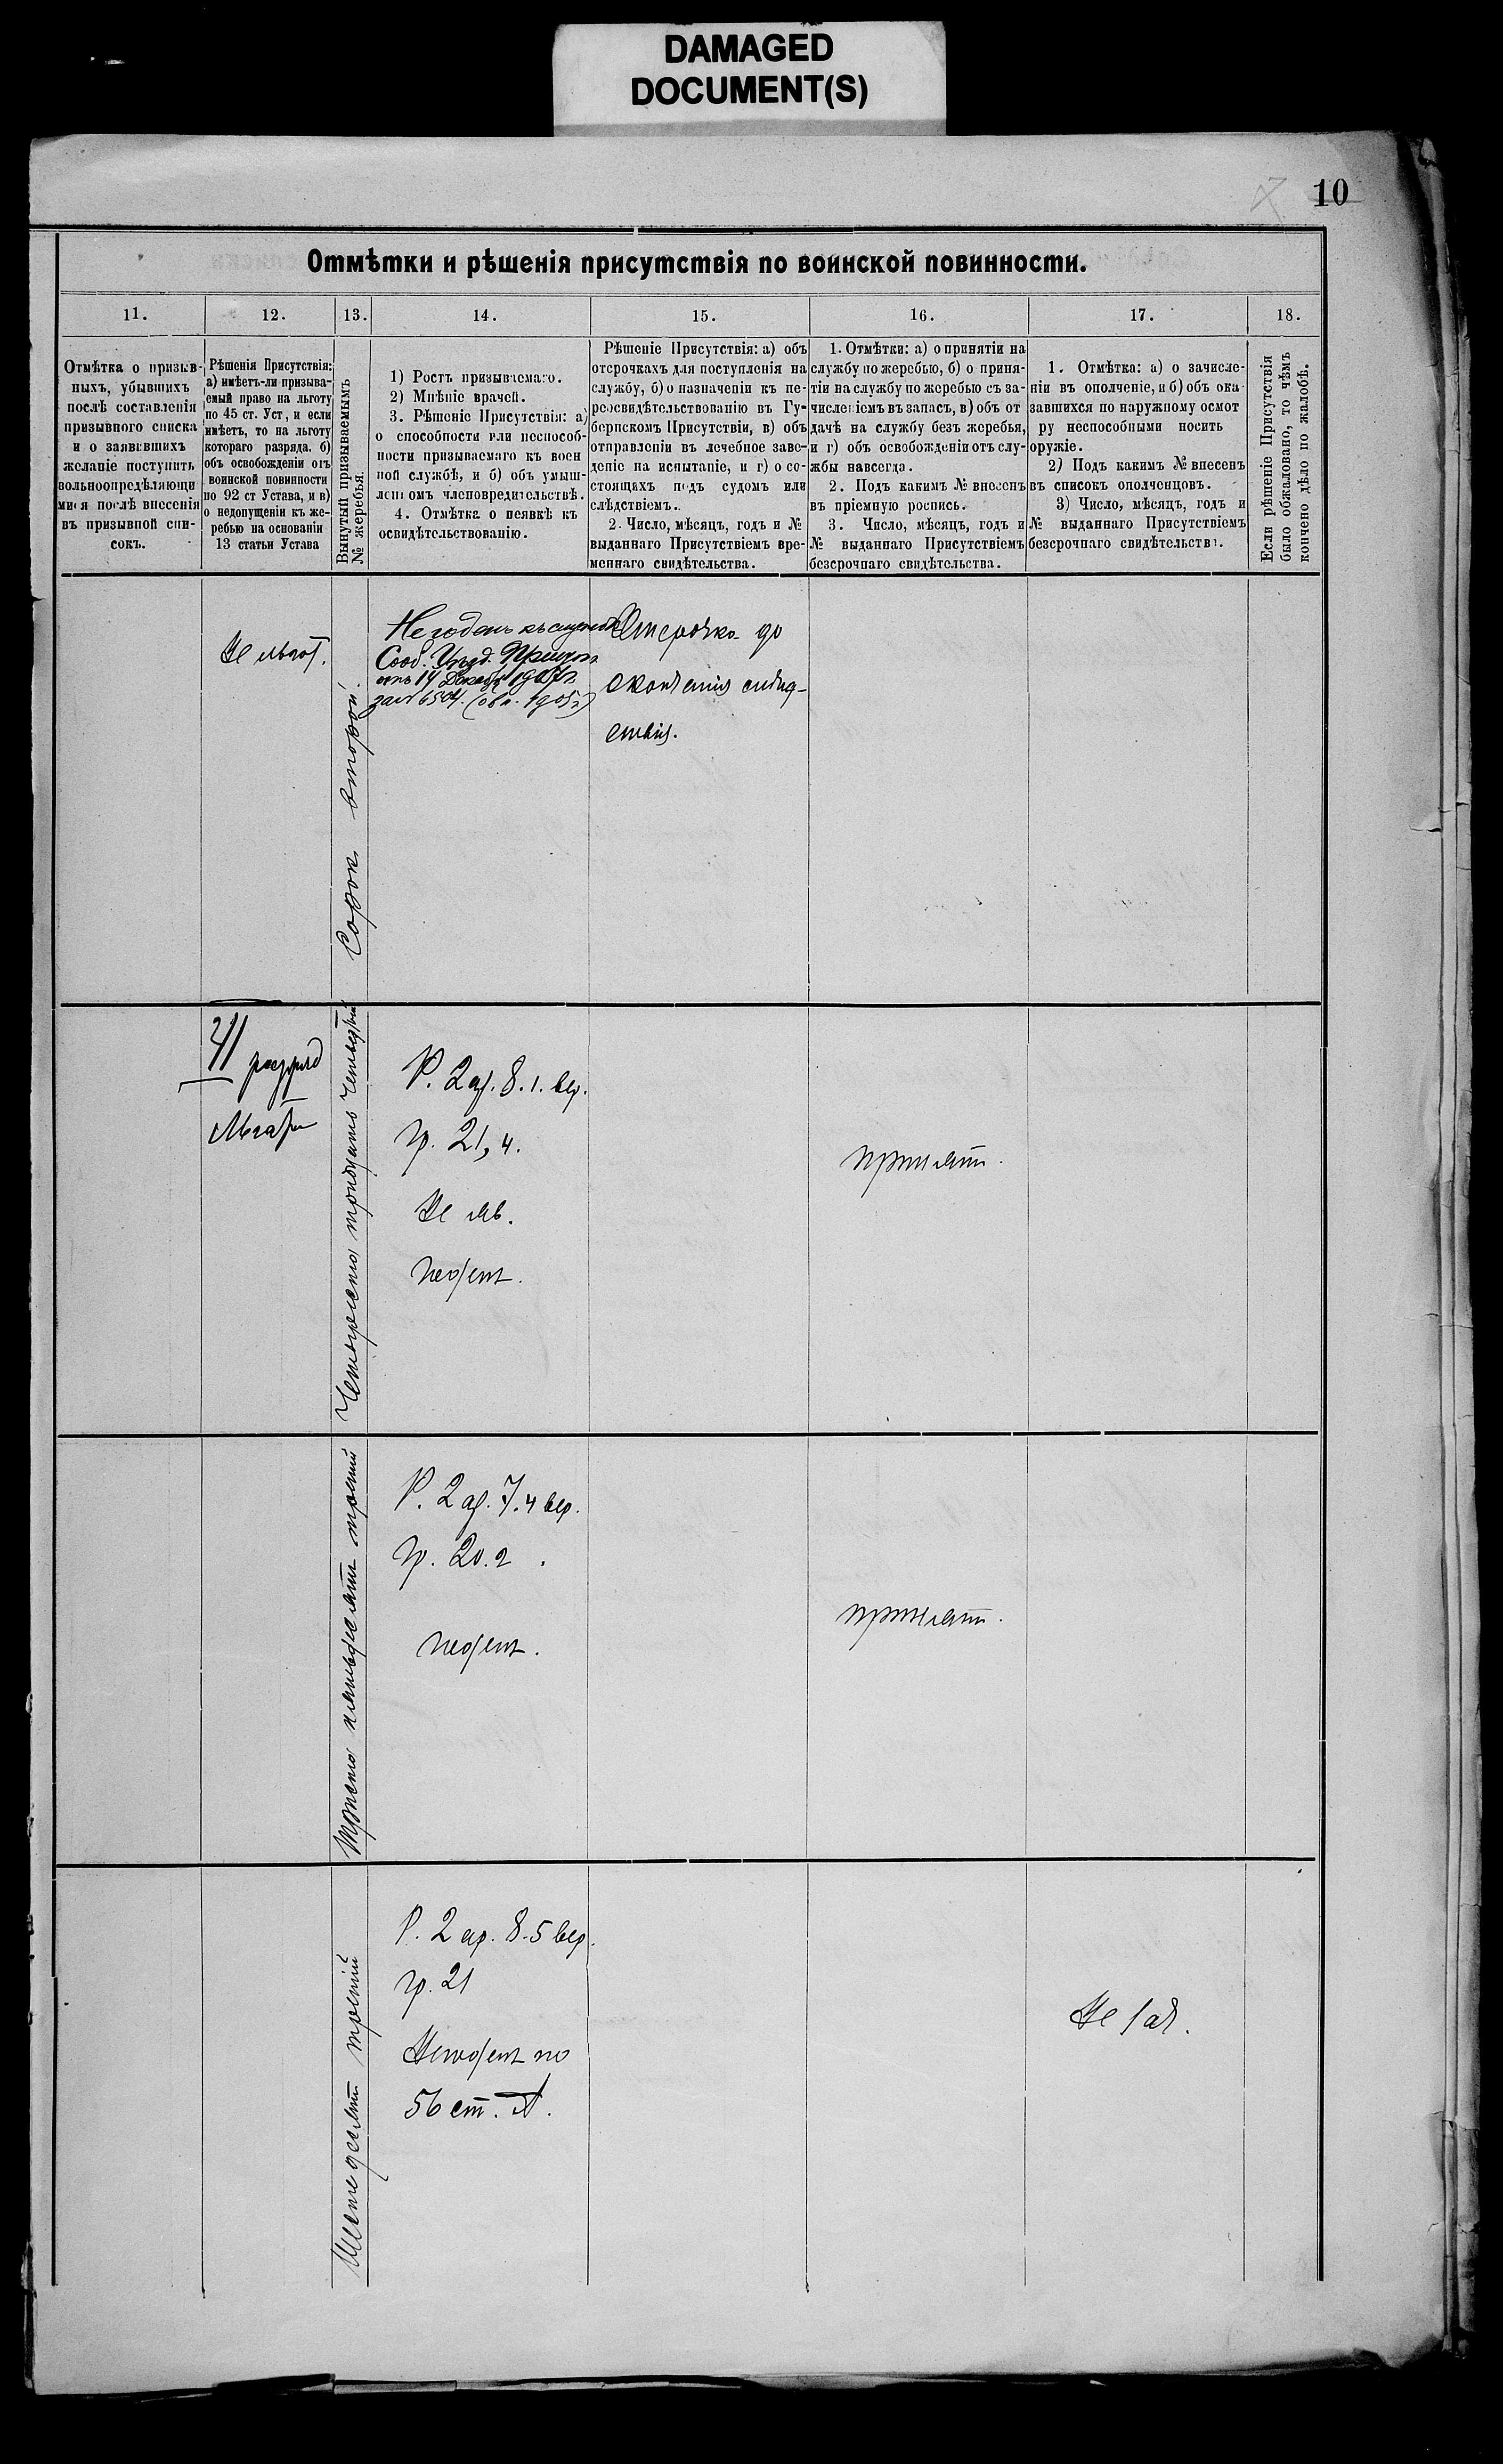 DAMAGED
DOCUMENT(S)
10
Отмѣтки и рѣшенія присутствія по воинской повинности.
11.
12.
13.
14.
15.
16.
17.
18.
Отмѣтка о призыв-
ныхъ, убывшихъ
послѣ составленія
призывного списка
и о заявившихъ
желаніе поступить
вольноопредѣляющи
мися послѣ внесенія
въ призывной спи-
сокъ.
Рѣшенія Присутствія:
а) имѣетъ-ли призыва-
емый право на льготу
по 45 ст. Уст, и если
имѣетъ, то на льготу
котораго разряда. б)
объ освобожденіи отъ
воинской повинности
по 92 ст Устава, и в)
о недопущеніи къ же-
ребью на основаніи
13 статьи Устава
Вынутый призываемымъ
№ жеребья.
1) Ростъ призываемаго.
2) Мнѣніе врачей.
3. Рѣшеніе Присутствія: а)
о способности или неспособ-
ности призываемаго къ воен
ной службѣ, и б) объ умыш-
ленномъ членовредительствѣ.
4. Отмѣтка о неявкѣ къ
освидѣтельствованію.
Рѣшеніе Присутствія: а) объ
отсрочкахъ для поступленія на
службу, б) о назначеніи къ пе-
реосвидѣтельствованію въ Гу-
бернскомъ Присутствіи, в) объ
отправленіи въ лечебное заве-
деніе на испытаніе, и г) о со-
стоящахъ подъ судомъ или
слѣдствіемъ.
2. Число, мѣсяцъ, годъ и №
выданнаго Присутствіемъ вре-
меннаго свидѣтельства.
1. Отмѣтки: а) о принятіи на
службу по жеребью, б) о приня-
тіи на службу по жеребью съ за-
численіемъ въ запасъ, в) объ от
дачѣ на службу безъ жеребья,
и г) объ освобожденіи отъ слу-
жбы навсегда.
2. Подъ какимъ № внесенъ
въ пріемную роспись.
3. Число, мѣсяцъ, годъ и
№ выданнаго Присутствіемъ
безсрочнаго свидѣтельства.
1. Отмѣтка: а) о зачисле-
ніи въ ополченіе, и б) объ ока
завшихся по наружному осмот
ру неспособными носить
оружіе.
2) Подъ какимъ № внесенъ
въ списокъ ополченцовъ.
3) Число, мѣсяцъ, годъ и
№ выданнаго Присутствіемъ
безсрочнаго свидѣтельства.
Если рѣшеніе Присутствія
было обжаловано, то чѣмъ
кончено дѣло по жалобѣ.
Не льгот.
Сорок второй.
Негоденъ къ службѣ
Сооб. Уѣзд.
отъ 14 Декабр 1907г.
за № 6504.
Отсрочка до
окончанія слѣд-
ствія.
разряд
Четыреста тридцать четвертый
Р. 2 ар. 8. 1. вер.
гр. 21, 4.
Не яв.
принят.
Триста пятьдесят третий
Р. 2 ар. 7. 4 вер.
гр. 20. 2.
принят.
Шестьдесят третий
Р. 2 ар. 8. 5 вер.
гр. 21
по
56 ст. А.